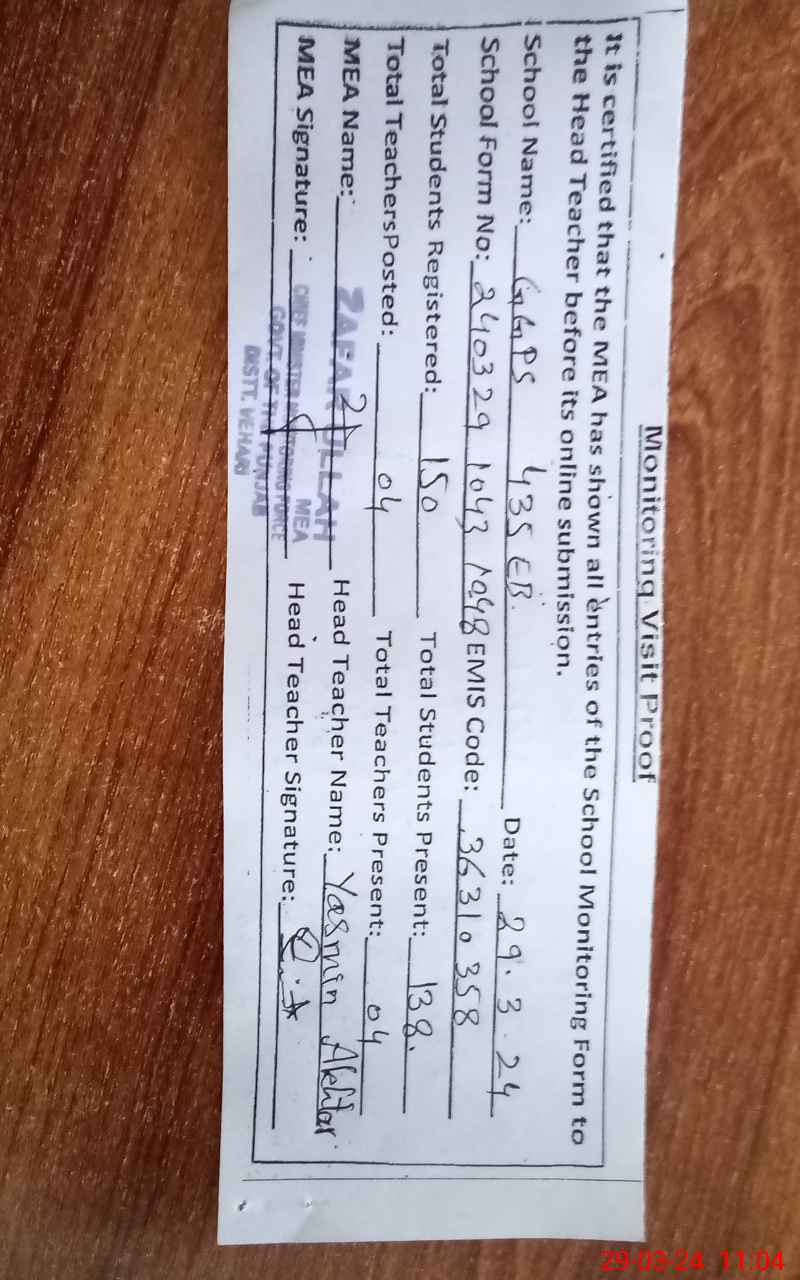 Monitoring Visit Proof
It is certified that the MEA has shown all entries of the School Monitoring Form to
the Head Teacher before its online submission.
School Name: GGPS 435 EB. Date: 29.3.24
School Form No: 240329 1043 1048 EMIS Code: 36310358
Total Students Registered: 150 Total Students Present: 138.
Total Teachers Posted: 04 Total Teachers Present: 04
MEA Name: ZAFAR ULLAH Head Teacher Name: Yasmin Akhtar
MEA
MEA Signature: Head Teacher Signature:
CHIEF MINISTER MONITORING FORCE
GOVT. OF THE PUNJAB
DISTT. VEHARI
29-03-24 11:04